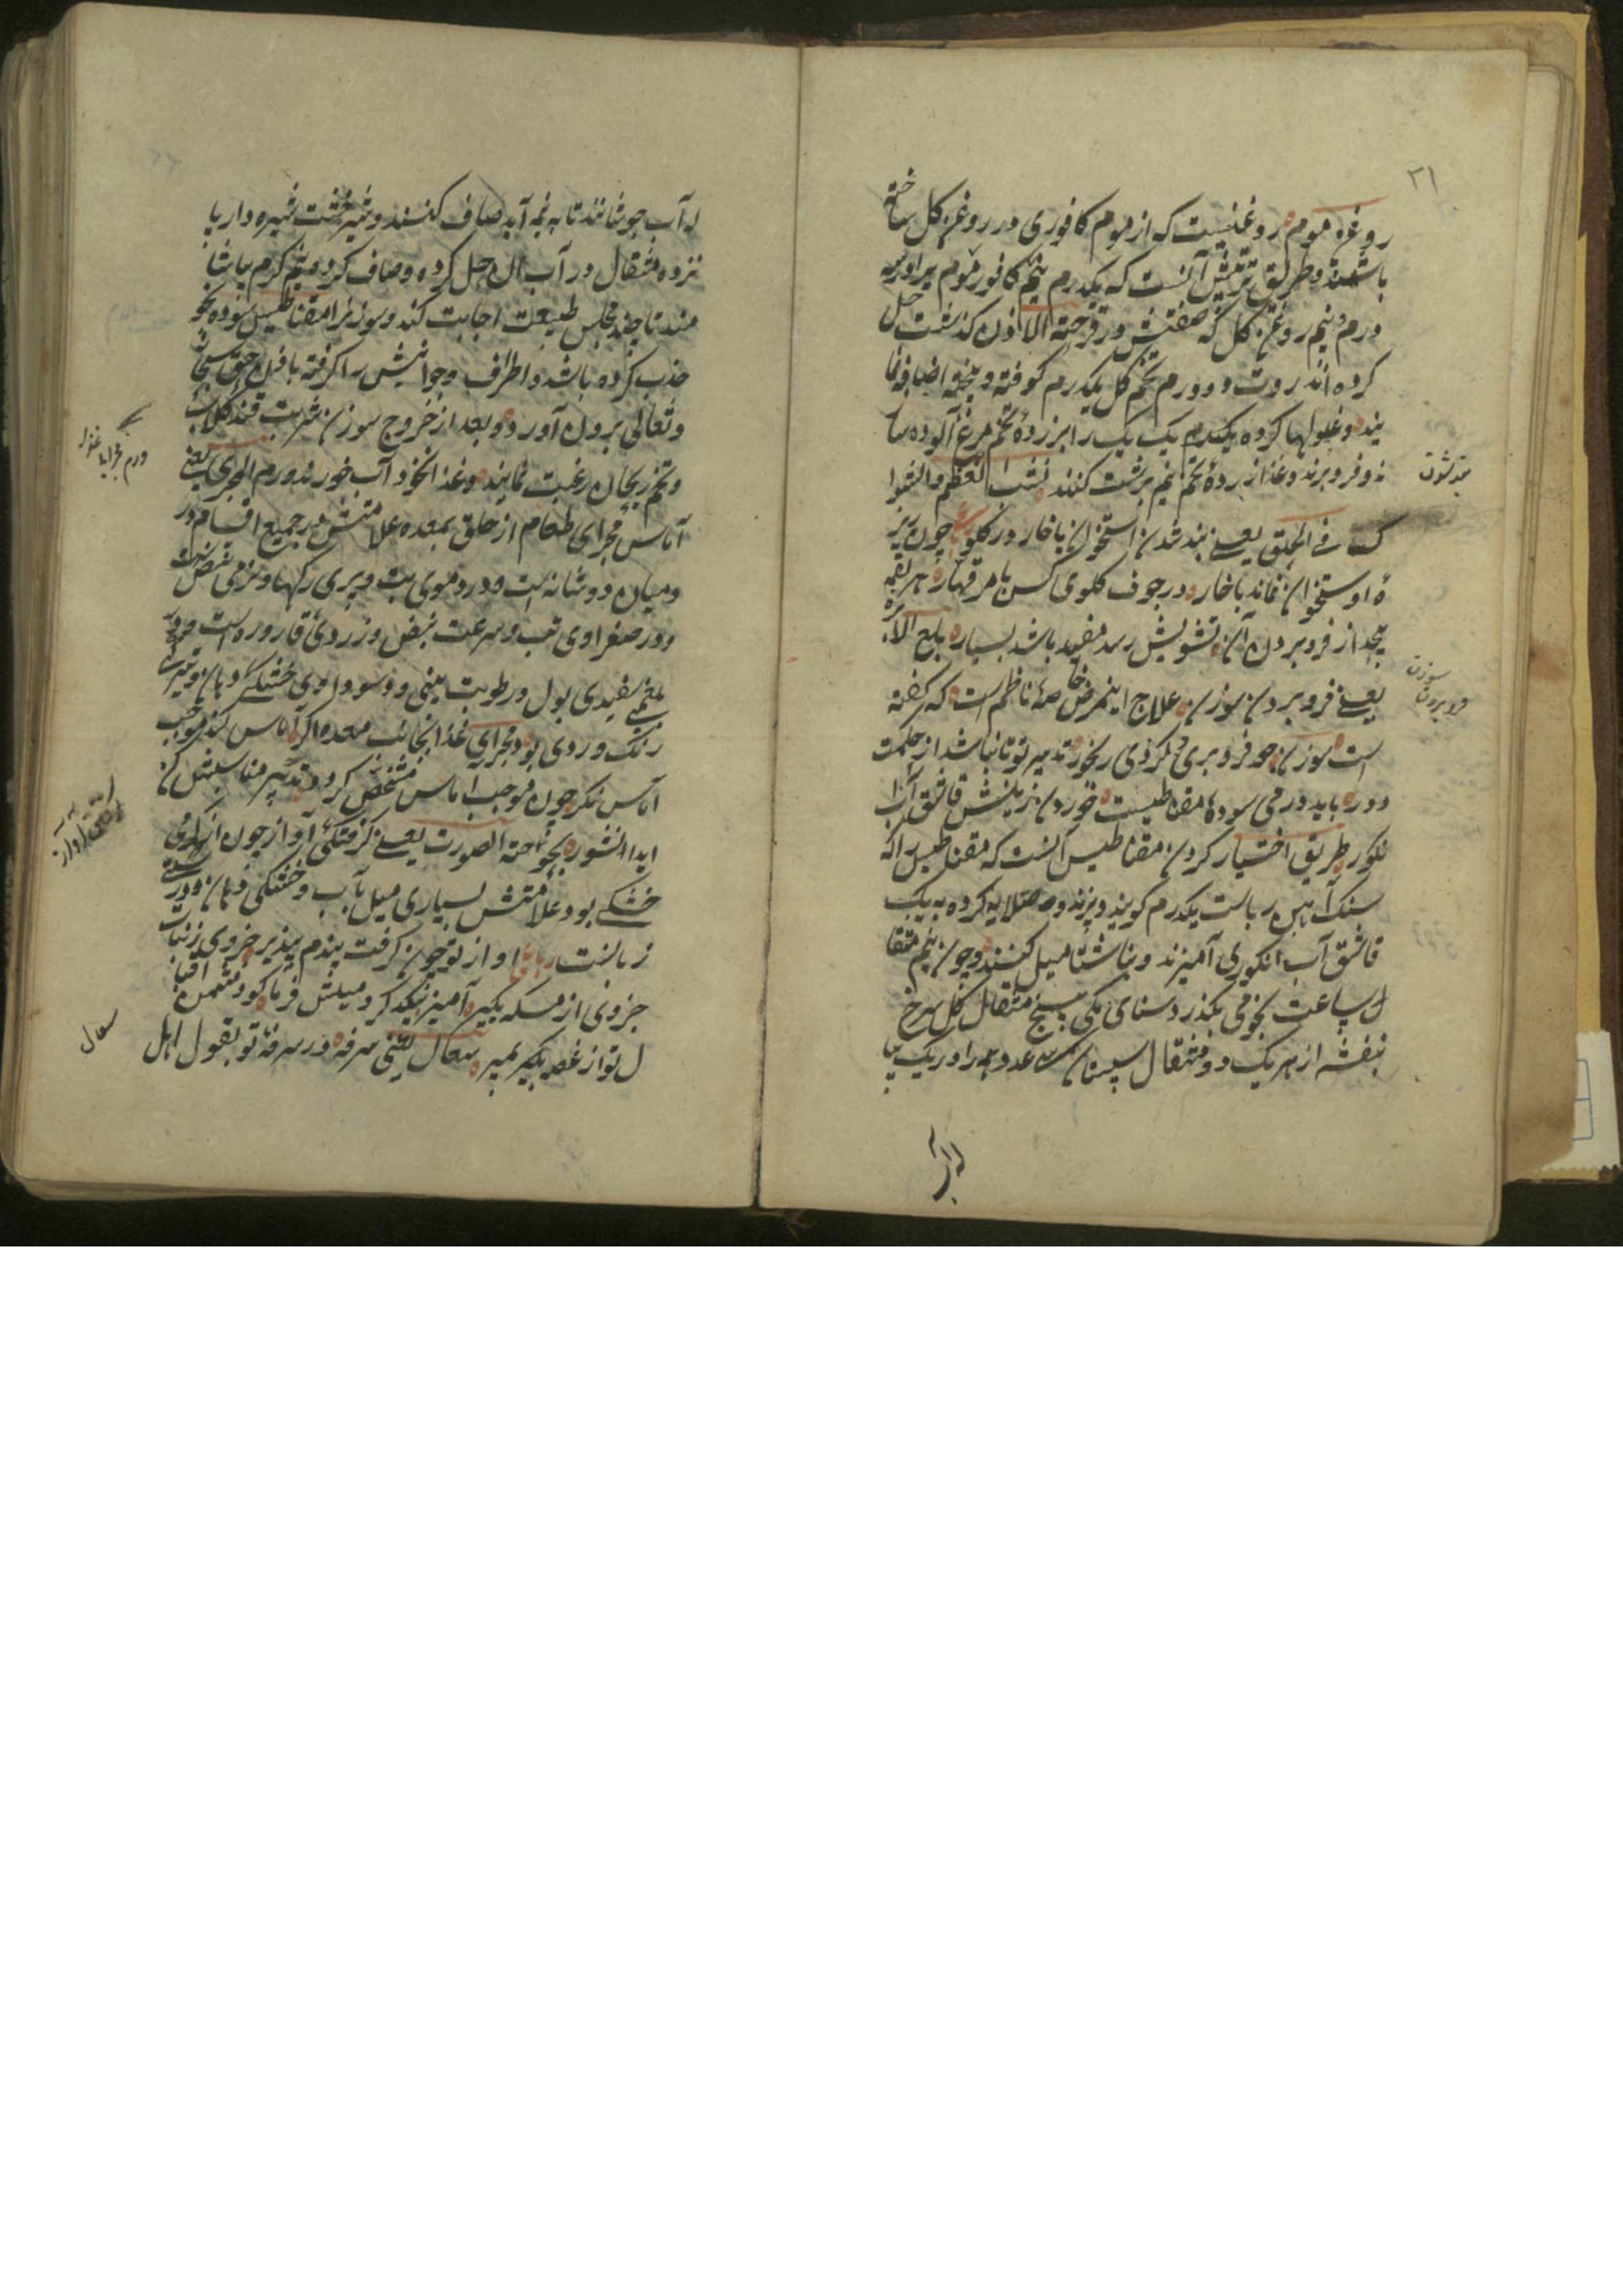 ۳۱
روغن موم روغنیست که از موم کافوری در روغن کل ساخته
باشند و طریق آنست که یکدرم نیم کافور موم برابر سه
درم و نیم روغن کل که صفتش در قرحة الاذن کذشت حل
کرده اند روت دو درم تخم کل یکدرم کوفته و بیخته اضافه نما
یند و غلولها کرده یکدرم یک یک را بزرده تخم مرغ آلوده سا
زند و فرو برند و غذا زرده تخم نیم برشت کنند نشب العظم والشوا
ک فی الحلق یعنے بند شدن استخوان یا خار در کلو چون ریز
ه او ستخوان ماند یا خار در جوف کلوی کس بهر لقمه
بجد از فرو بردن آن تشویش رسد مفید باشد بسیار بلع الابره
یعنے فرو بردن سوزن علاج اینمرض خاصهٔ ناظم است که کفته
است سوزن چو فرو بری مکردی رنجور تدبیر تو تا نباشد از حکمت
دور باید در می سوده مقناطیست خوردن زینش قاشق آب ا
نکور طریق اختیار کردن مقناطیس آنست که مقناطیس را که
سنک آهن رباست یکدرم کوبند و پزند و صلایه کرده به یک
قاشق آب انکوری آمیزند و ناشتا میل کنند و چون نیم مثقا
ل ساعت نجومی بکذرد سنای مکی پنج مثقال کل سرخ
بنفشه از هریک دو مثقال سپستان سی عدد همه را در یک پیا
له آب
بند شدن
فرو بردن سوزن
له آب جوشانند تا به نیمه آید صاف کنند و شیرخشت شیره دار یا
نزده مثقال در آب آن حل کرده و صاف کرده نیم کرم بیاشا
مند تا چند مجلس طبیعت اجابت کند و سوزنرا مقناطیس سوده بخو
جذب کرده باشد و اطراف و جوانیش را کرفته باذن حق سبحا
و تعالی برون آورد و بعد از خروج سوزن شربت قند کلاب
و تخم ریحان رغبت نمایند و غذا نخود آب خورند ورم المجری یعنے
آماس مجرای طعام از حلق بمعده علامتش در جمیع اقسام درد
و میان دو شانه است و در دموی تب و پری رکها و نرمی نبض
و در صفراوی تب و سرعت نبض و زردی قاروره است و در
بلغمی سفیدی بول و رطوبت بینی و در سوداوی خشکی دهان و تیرکی
رنک و روی بود مجرای غذا بجانب معده اکر آماس کند موجب
آماس نکر چون موجب اماس مشخص کردد تدبیر مناسبش کن
ابدا النشور بحوحة الصورت یعنے کرفتکی آواز چون از کرمی
خشکی بود علامتش بسیاری میل بآب و خشکی دهان و در
زبانست رباعی اواز تو چون کرفت پندم بپذیر جزوی ز نبات
جزوی از مسکه بکیر آمیز بیکدکر و میلش فرما
ل تو از غصه بکیر بمیر سعال یعنی سرفه در سرفه تو بقول اهل
ورم مجرای غذا
کرفتن آواز
سعال